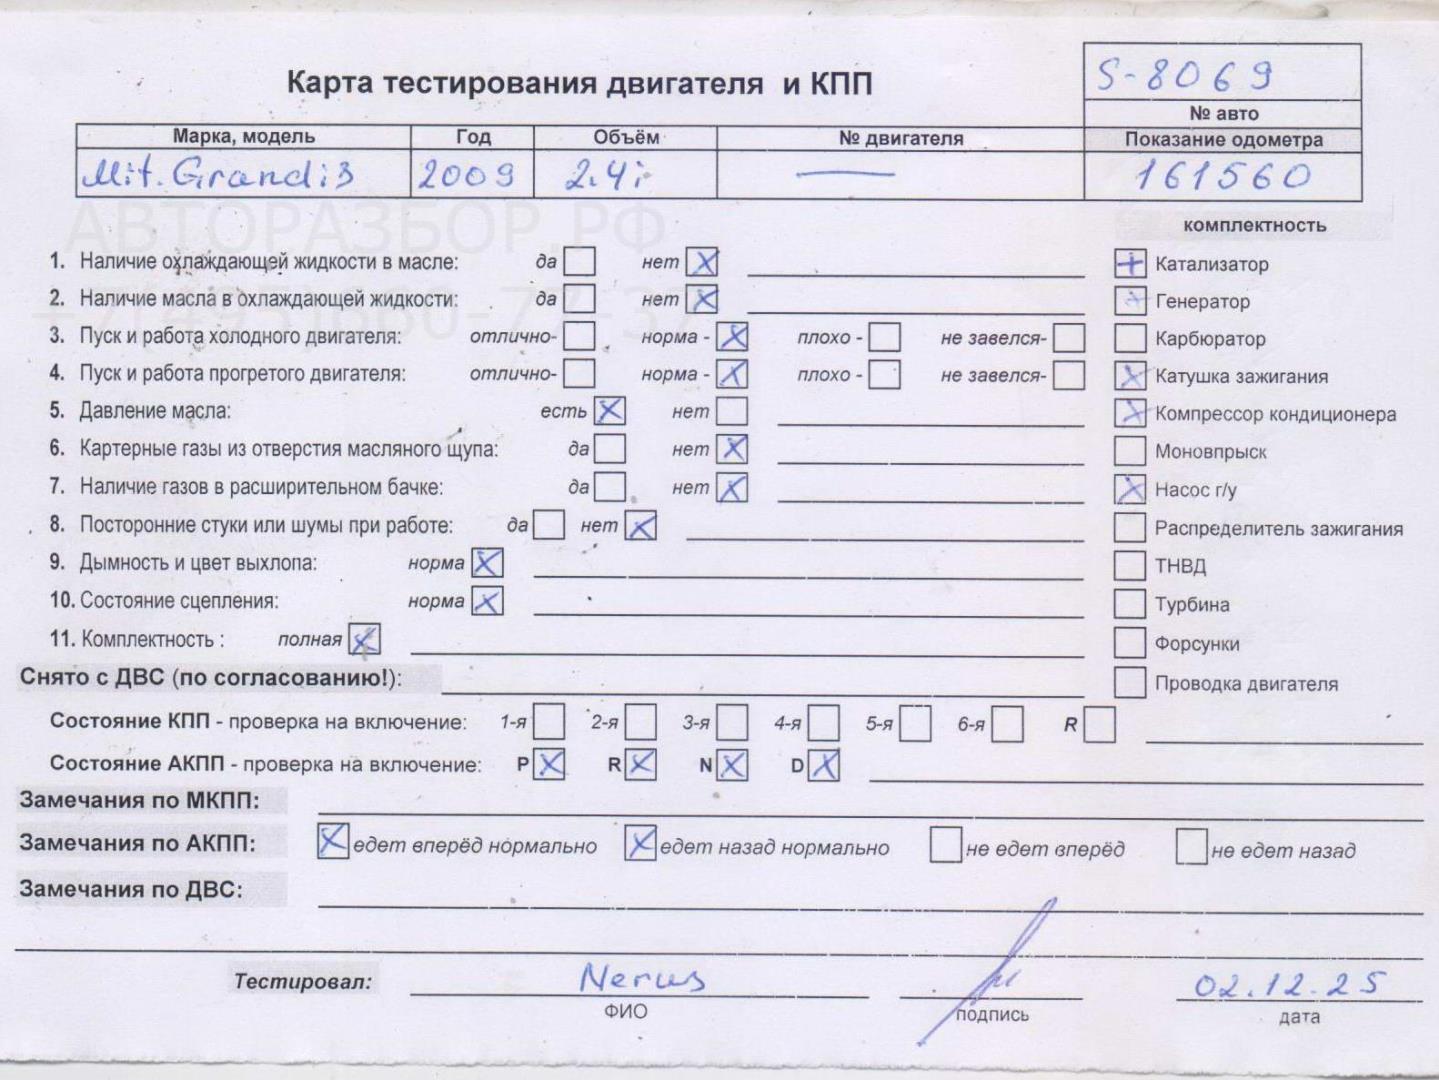 S-8069
Карта тестирования двигателя и КПП
№ авто
Марка, модель Год Объём № двигателя Показание одометра
Mit. Grandis 2009 2.4i — 161560
АВТОРАЗБОР.РФ
+7(495)660-77-37
комплектность
1. Наличие охлаждающей жидкости в масле: да нет X Катализатор
2. Наличие масла в охлаждающей жидкости: да нет X Генератор
3. Пуск и работа холодного двигателя: отлично- норма - X плохо - не завелся- Карбюратор
4. Пуск и работа прогретого двигателя: отлично- норма - X плохо - не завелся- X Катушка зажигания
5. Давление масла: есть X нет X Компрессор кондиционера
6. Картерные газы из отверстия масляного щупа: да нет X Моновпрыск
7. Наличие газов в расширительном бачке: да нет X X Насос г/у
8. Посторонние стуки или шумы при работе: да нет X Распределитель зажигания
9. Дымность и цвет выхлопа: норма X ТНВД
10. Состояние сцепления: норма X Турбина
11. Комплектность : полная X Форсунки
Снято с ДВС (по согласованию!): Проводка двигателя
Состояние КПП - проверка на включение: 1-я 2-я 3-я 4-я 5-я 6-я R
Состояние АКПП - проверка на включение: P X R X N X D X
Замечания по МКПП:
Замечания по АКПП: X едет вперёд нормально X едет назад нормально не едет вперёд не едет назад
Замечания по ДВС:
Тестировал: 02.12.25
ФИО подпись дата